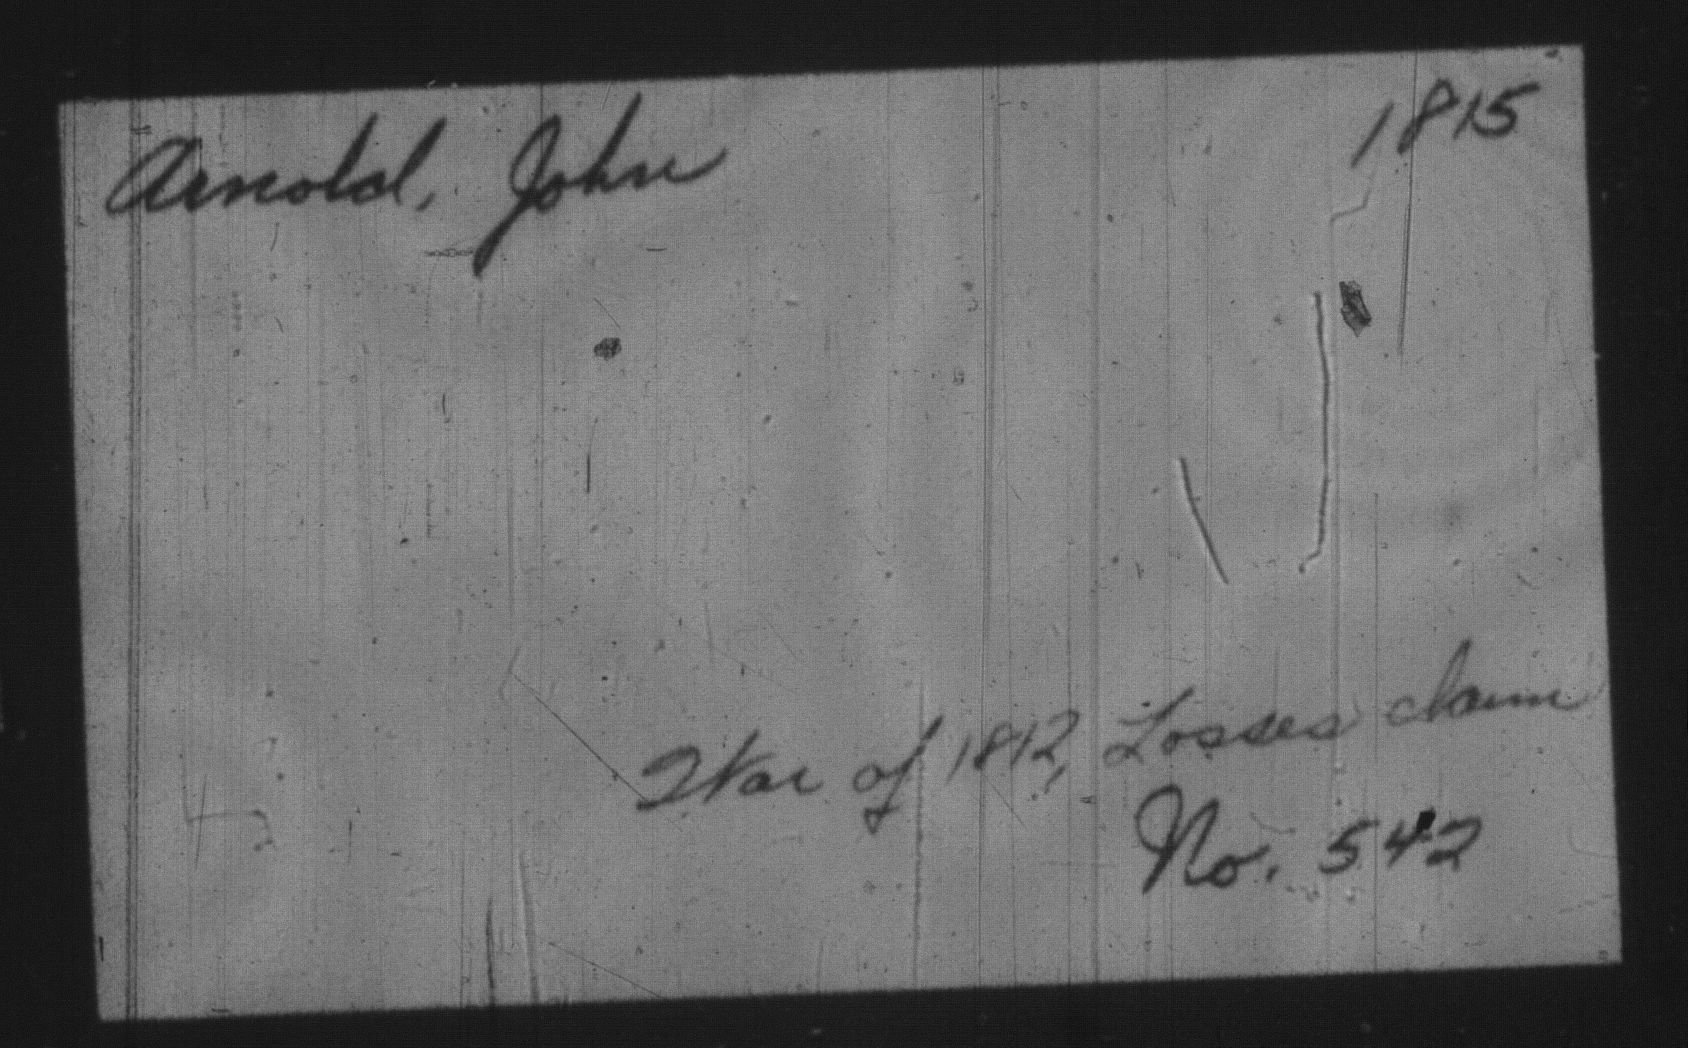 Arnold, John 1815
War of 1812, Losses claim
No. 542